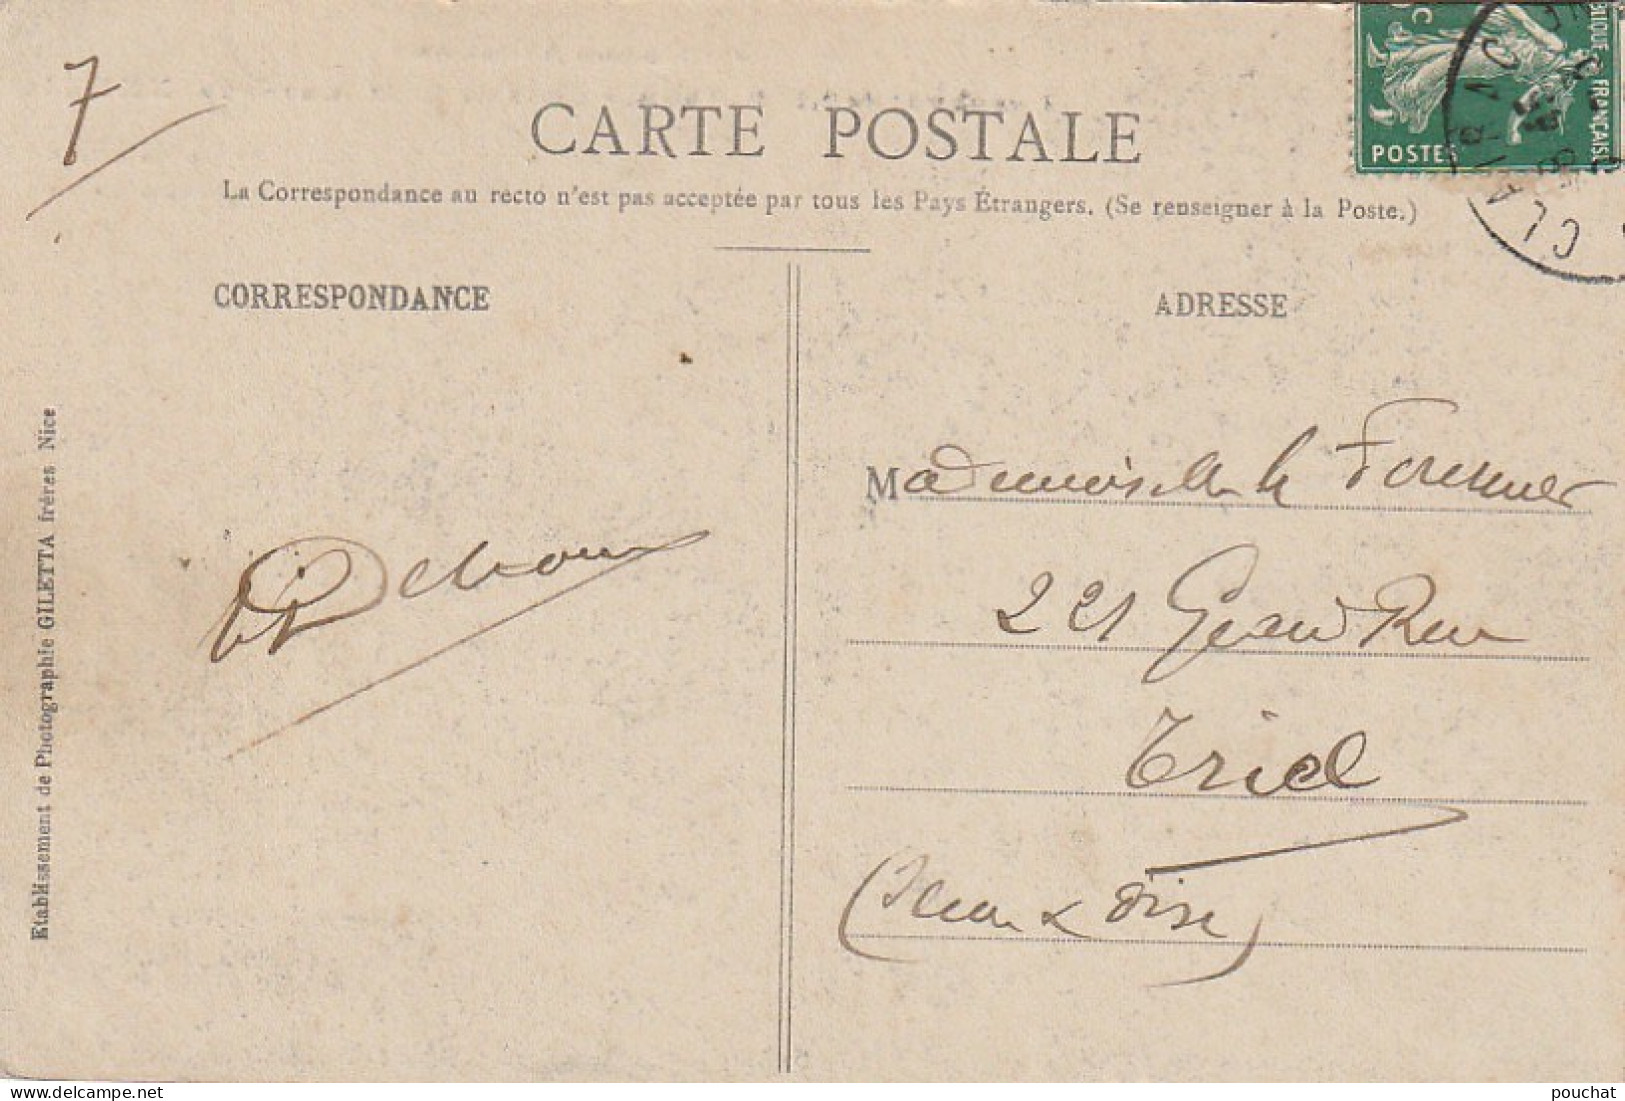 7
CARTE POSTALE
La Correspondance au recto n'est pas acceptée par tous les Pays Étrangers. (Se renseigner à la Poste.)
CORRESPONDANCE
ADRESSE
POSTES
FRANÇAISE
Mademoiselle
221 Grand Rue
Triel
(Seine & Oise)
Etablissement de Photographie GILETTA frères Nice
pouchat